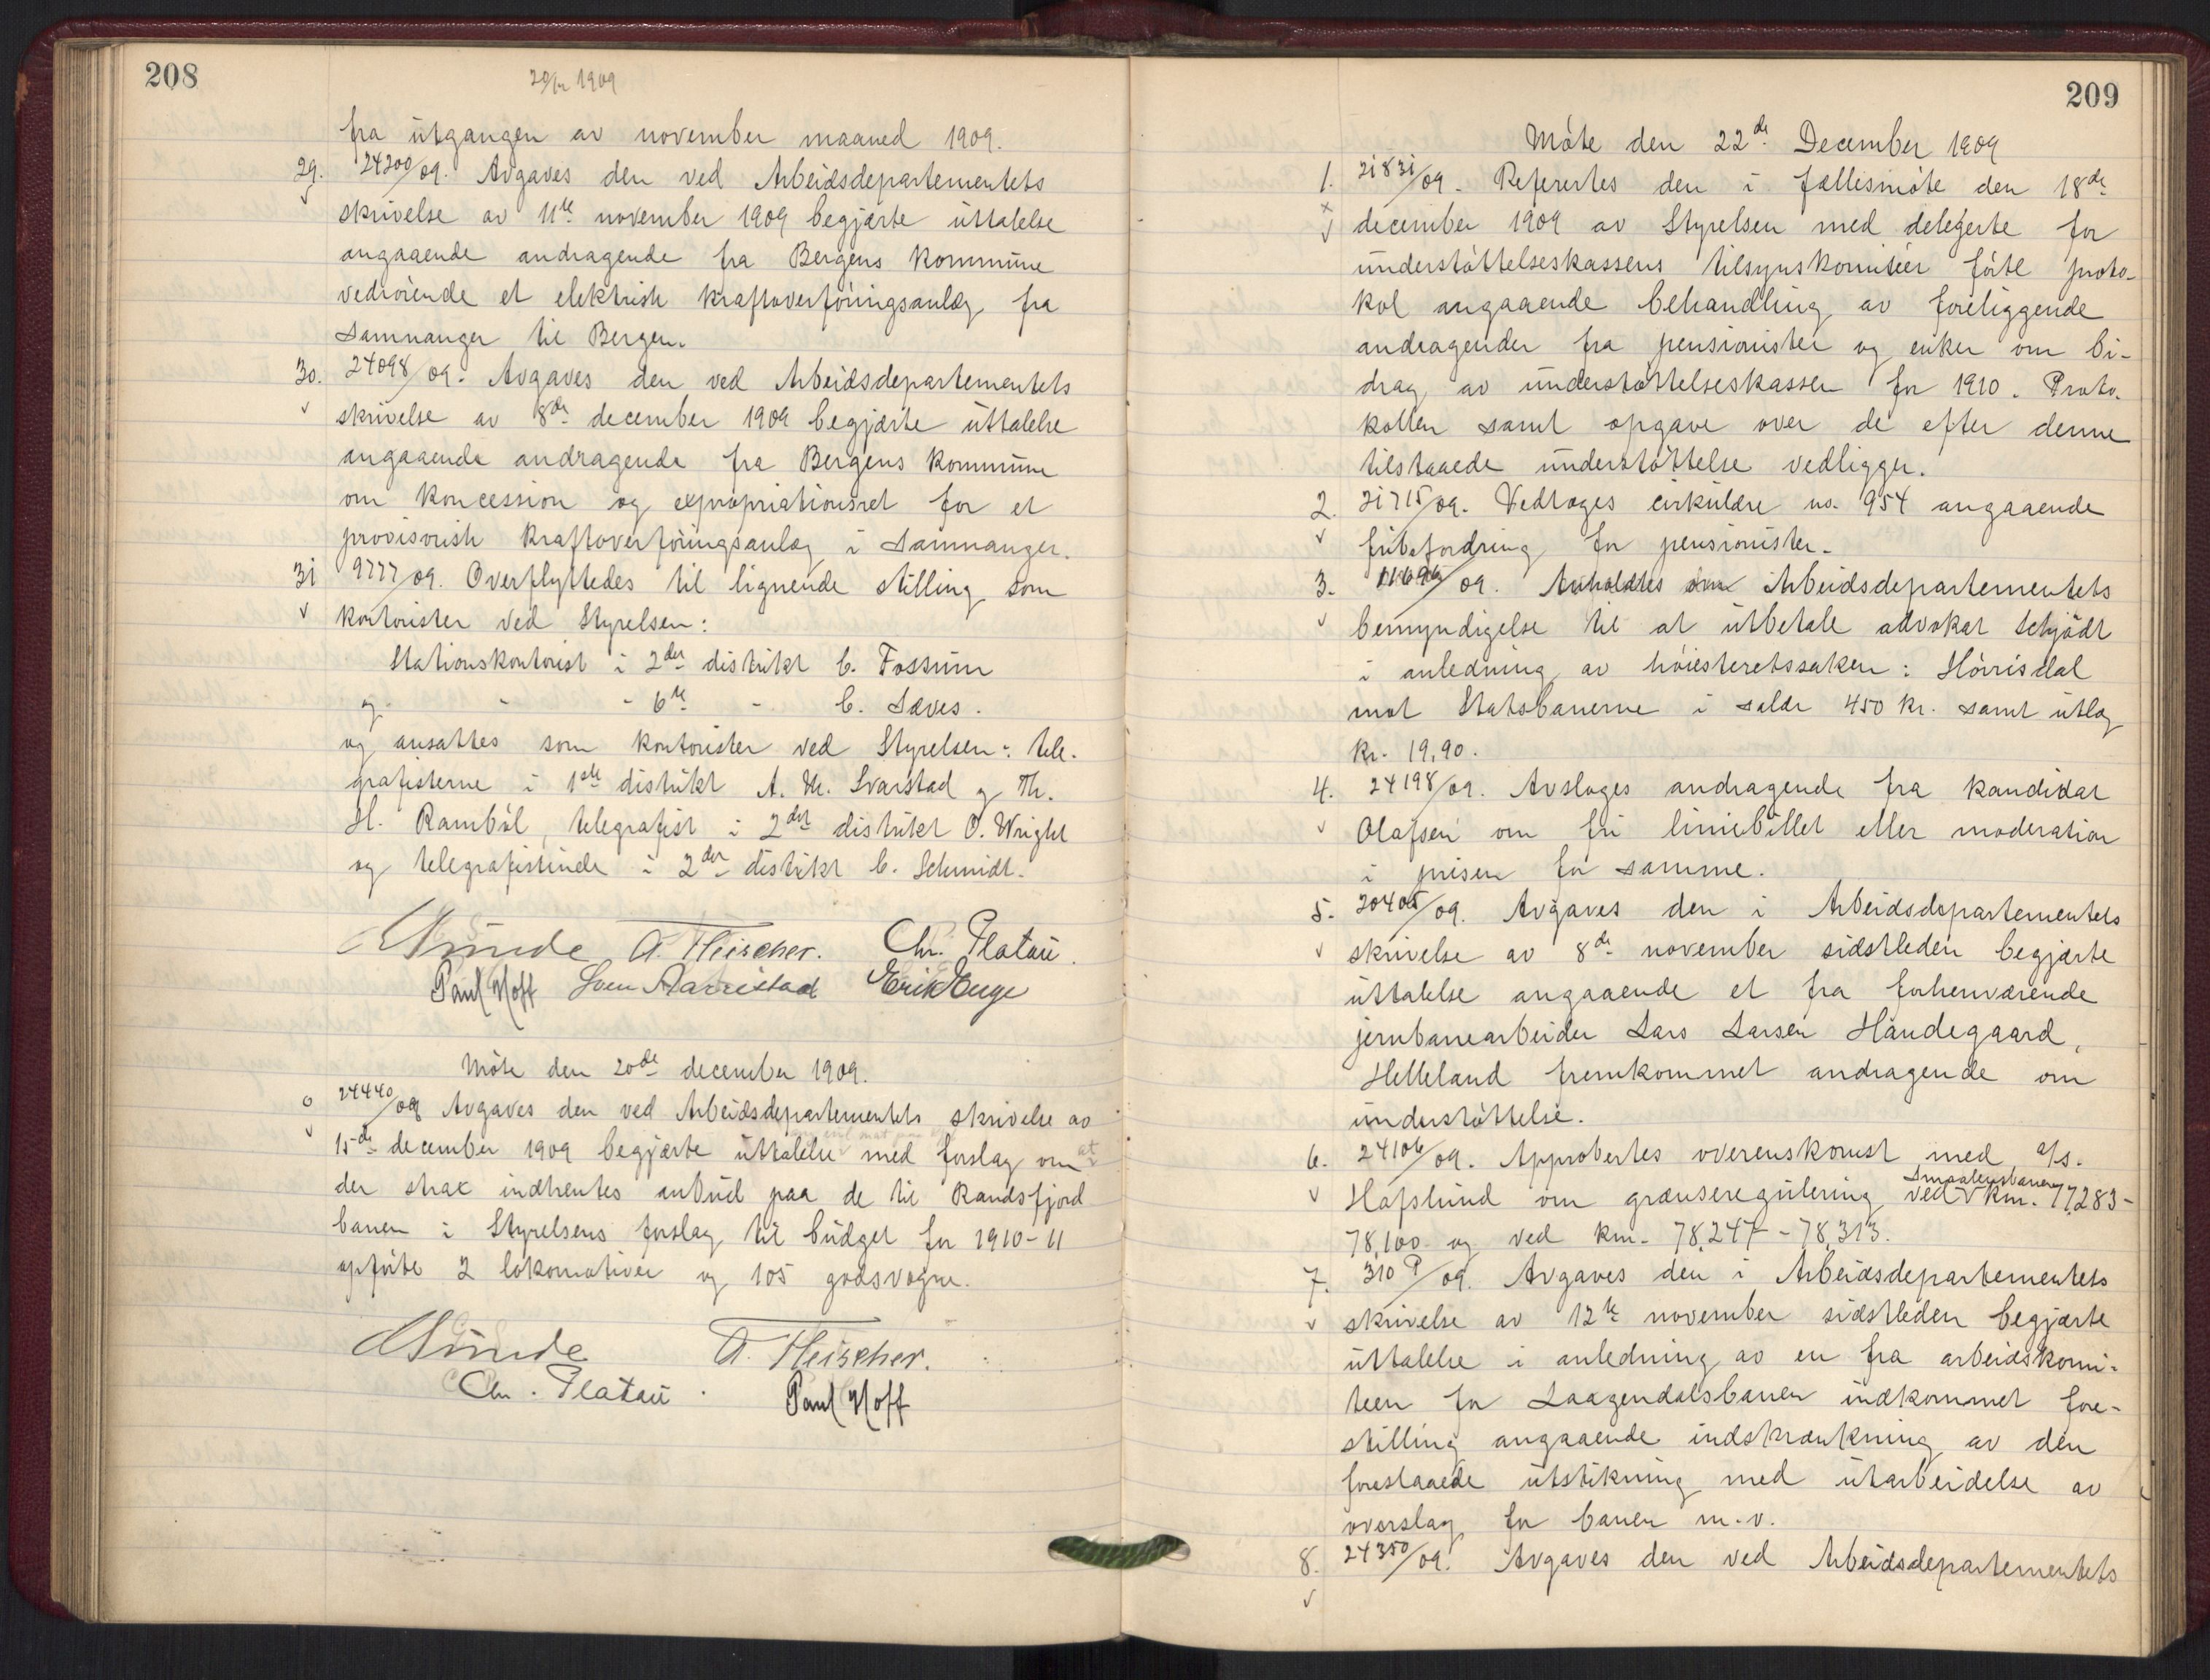 208
20/12 1909
fra utgangen av november maaned 1909.
29. 24200/09. Avgaves den ved Arbeidsdepartementets
skrivelse av 11te november 1909 begjærte uttalelse
angaaende andragende fra Bergens kommune
vedrörende et elektrisk kraftoverföringsanlæg fra
Samnanger til Bergen.
30. 24098/09. Avgaves den ved Arbeidsdepartementets
skrivelse av 8de december 1909 begjærte uttalelse
angaaende andragende fra Bergens kommune
om koncession og expropriationsret for et
provisorisk kraftoverföringsanlæg i Samnanger.
31 9777/09. Overflyttedes til lignende stilling som
kontorister ved Styrelsen:
Stationskontorist i 2det distrikt C. Fossum
og - - 6te - C. Sæves.
og ansattes som kontorister ved Styrelsen: tele-
grafisterne i 1ste distrikt A. M. Svarstad og Th.
H. Ramböl, telegrafist i 2det distrikt O. Wright
og telegrafistinde i 2det distrikt C. Schmidt.
Sunde A. Fleischer. Chr. Platou.
Paul Hoff Sven Aarrestad Erik Enge
Möte den 20de december 1909.
24440/09 Avgaves den ved Arbeidsdepartementets skrivelse av
15de december 1909 begjærte uttalelse med forslag om at
der strax indhentes anbud paa de til Randsfjord
banen i Styrelsens forslag til budget for 1910-11
opförte 2 lokomotiver og 105 godsvogne.
Sunde A. Fleischer.
Chr. Platou. Paul Hoff
209
Möte den 22de December 1909
1. 21831/09. Refertes den i fællesmöte den 18de
december 1909 av Styrelsen med delegerte for
understöttelseskassens tilsynskomiteer förte proto-
kol angaaende behandling av foreliggende
andragender fra pensionister og enker om bi-
drag av understöttelseskassen for 1910. Proto-
kollen samt opgave over de efter denne
tilstaaede understöttelse vedligger.
2. 21715/09. Vedtoges cirkulære no. 954 angaaende
fribefordring for pensionister.
3. 11696/09. Anholdtes om Arbeidsdepartementets
bemyndigelse til at utbetale advokat Schjödt
i anledning av höiesteretssaken: Hörrisdal
mot Statsbanerne i salær 450 kr. samt utlæg
kr. 19,90.
4. 24198/09. Avsloges andragende fra kandidat
Olafsen om fri liniebillet eller moderation
i prisen for samme.
5. 20405/09. Avgaves den i Arbeidsdepartementets
skrivelse av 8de november sidstleden begjærte
uttalelse angaaende et fra forhenværende
jernbanearbeider Lars Larsen Handegaard,
Helleland fremkommet andragende om
understöttelse.
6. 24106/09. Approbertes overenskomst med a/s.
Hafslund om grænseregulering ved Smaalensbanen km. 77,283-
78,100 og ved km. 78,247-78,313.
7. 310 P/09. Avgaves den i Arbeidsdepartementets
skrivelse av 12te november sidstleden begjærte
uttalelse i anledning av en fra arbeidskomi-
teen for Laagendalsbanen indkommet fore-
stilling angaaende indskrænkning av den
forestaaede utstikning med utarbeidelse av
overslag for banen m.v.
8. 24350/09. Avgaves den ved Arbeidsdepartementets